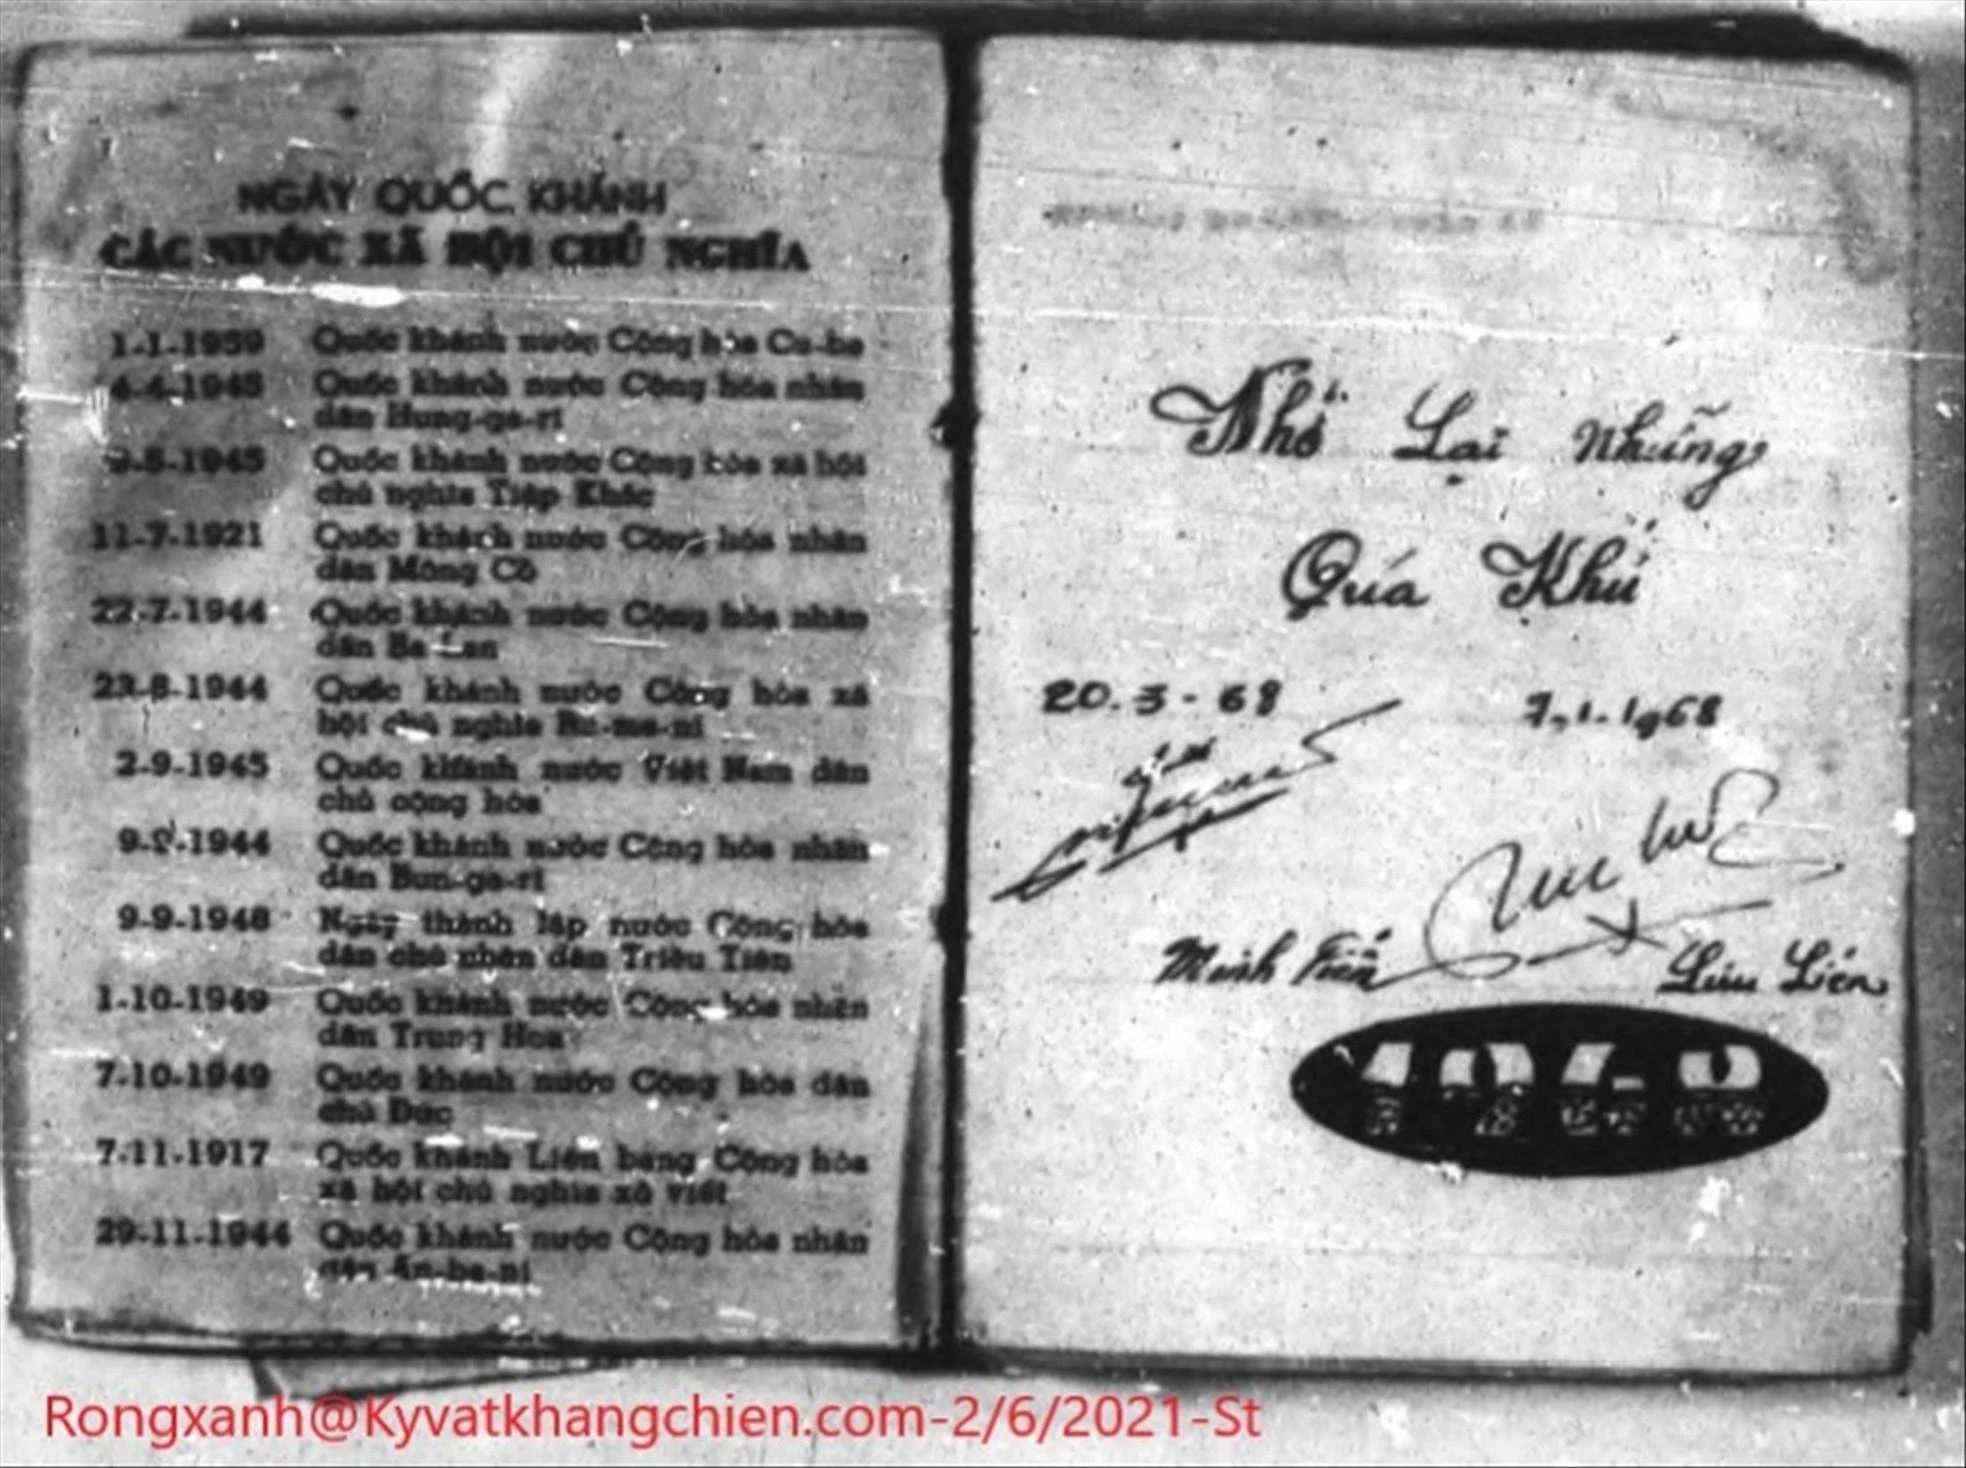 NGÀY QUỐC KHÁNH
CÁC NƯỚC XÃ HỘI CHỦ NGHĨA
1-1-1959 Quốc khánh nước Cộng hòa Cu-ba
4-4-1945 Quốc khánh nước Cộng hòa nhân
dân Hung-ga-ri
9-5-1945 Quốc khánh nước Cộng hòa xã hội
chủ nghĩa Tiệp Khắc
11-7-1921 Quốc khánh nước Cộng hòa nhân
dân Mông Cổ
22-7-1944 Quốc khánh nước Cộng hòa nhân
dân Ba Lan
23-8-1944 Quốc khánh nước Cộng hòa xã
hội chủ nghĩa Ru-ma-ni
2-9-1945 Quốc khánh nước Việt Nam dân
chủ cộng hòa
9-9-1944 Quốc khánh nước Cộng hòa nhân
dân Bun-ga-ri
9-9-1948 Ngày thành lập nước Cộng hòa
dân chủ nhân dân Triều Tiên
1-10-1949 Quốc khánh nước Cộng hòa nhân
dân Trung Hoa
7-10-1949 Quốc khánh nước Cộng hòa dân
chủ Đức
7-11-1917 Quốc khánh Liên bang Cộng hòa
xã hội chủ nghĩa xô viết
29-11-1944 Quốc khánh nước Cộng hòa nhân
dân An-ba-ni
Nhớ Lại những
Qúa Khứ
20.3-68 7.1.1968
Minh Tiến Lưu Liên
1968
Rongxanh@Kyvatkhangchien.com-2/6/2021-St